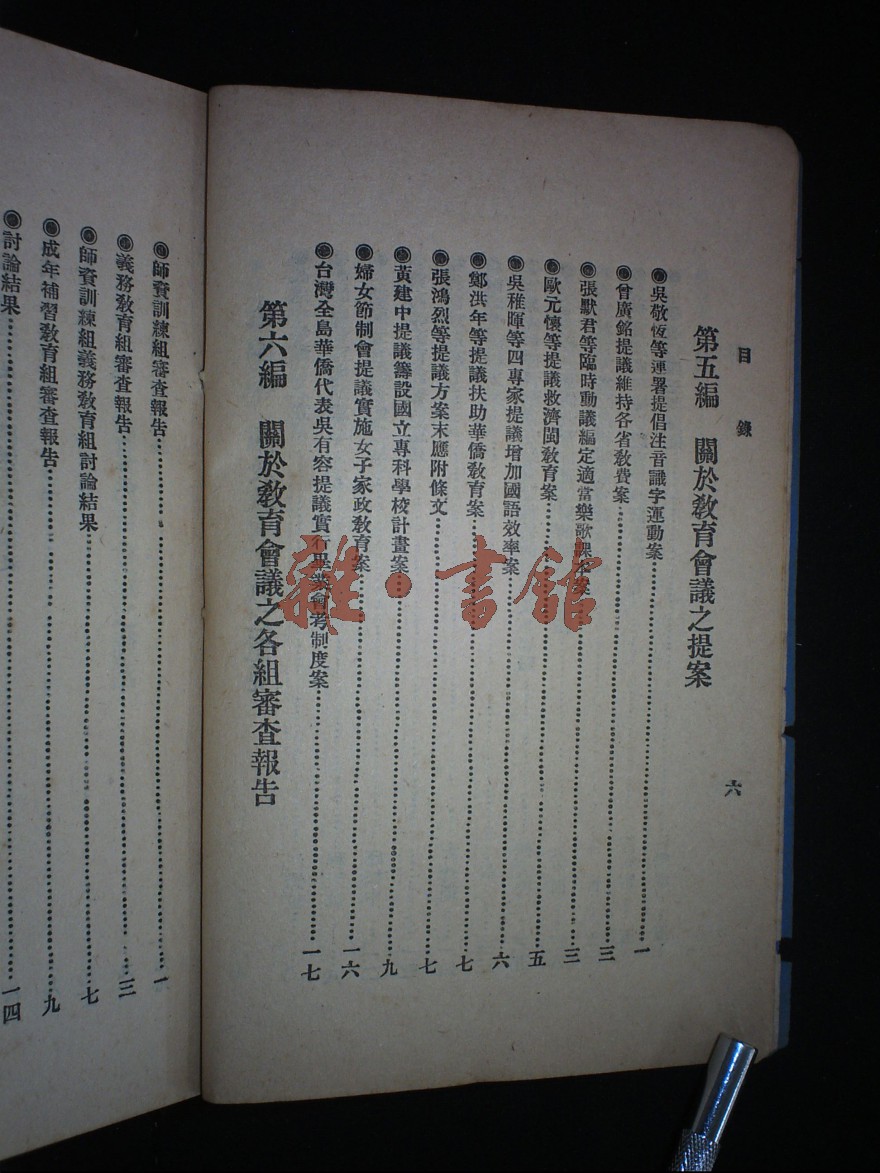 目錄
六
第五編　關於敎育會議之提案
◉吳敬恆等連署提倡注音識字運動案………一
◉曾廣銘提議維持各省敎費案………三
◉張默君等臨時動議編定適當樂歌課本案………三
◉歐元懷等提議救濟閩敎育案………五
◉吳稚暉等四專家提議增加國語效率案………六
◉鄭洪年等提議扶助華僑敎育案………七
◉張鴻烈等提議方案末應附條文………七
◉黃建中提議籌設國立專科學校計畫案………九
◉婦女節制會提議實施女子家政敎育案………一六
◉台灣全島華僑代表吳有容提議實行畢業會考制度案………一七
第六編　關於敎育會議之各組審查報告
◉師資訓練組審查報告………一
◉義務敎育組審查報告………三
◉師資訓練組義務敎育組討論結果………七
◉成年補習敎育組審查報告………九
◉討論結果………一四
雜·書館